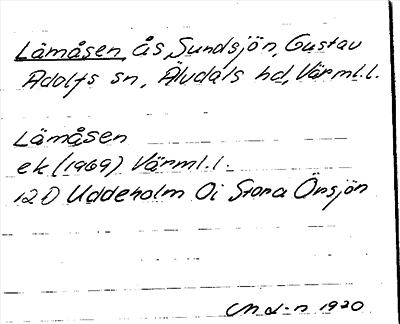 Lämåsen, ås, Sundsjön, Gustav
Adolfs sn, Älvdals hd, Värml.l.
Lämåsen
ek (1969) Värml.l.
12 D Uddeholm 0i Stora Örsjön
1920